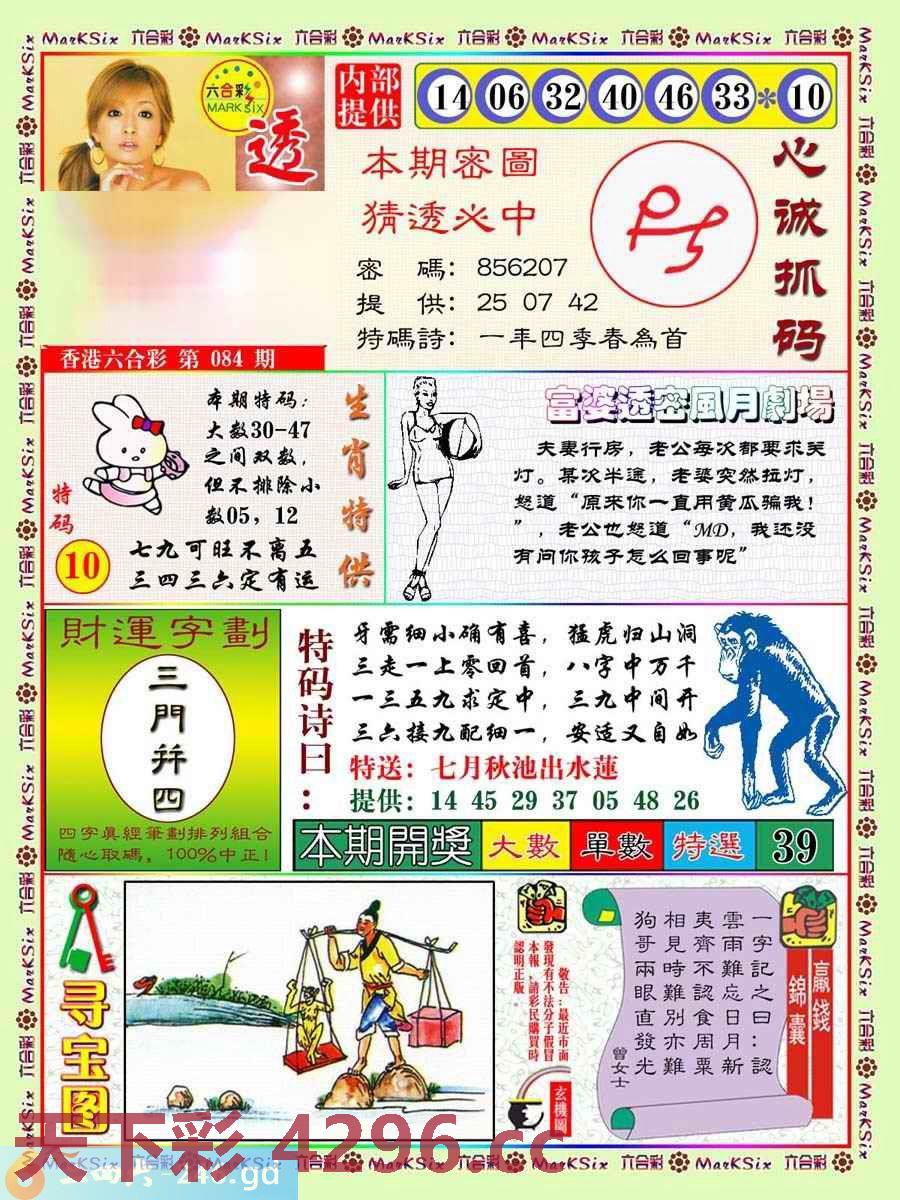 六合彩 MarKSix
六合彩
MARK SIX
透
内部
提供
14 06 32 40 46 33 * 10
本期密圖
猜透必中
密 碼: 856207
提 供: 25 07 42
特碼詩: 一年四季春為首
心诚抓码
香港六合彩 第 084 期
本期特码:
大数30-47
之间双数,
但不排除小
数05, 12
七九可旺不离五
三四三六定有运
特码
10
生肖特供
富婆透密風月劇場
夫妻行房, 老公每次都要求关
灯。某次半途, 老婆突然拉灯,
怒道“原来你一直用黄瓜骗我!
”, 老公也怒道“MD, 我还没
有问你孩子怎么回事呢”
財運字劃
三門并四
四字真經筆劃排列組合
隨心取碼, 100%中正!
特码诗曰:
牙需细小确有喜, 猛虎归山洞
三走一上零回首, 八字中万千
一三五九求定中, 三九中间开
三六接九配细一, 安适又自如
特送: 七月秋池出水蓮
提供: 14 45 29 37 05 48 26
本期開獎 大數 單數 特選 39
寻宝图
敬告:最近市面
發現有不法分子假冒
本報,請彩民購買時
認明正版。
玄機圖
贏錢
錦囊
一字記之曰:認
雲雨難忘日月新
夷齊不認食周粟
相見時難別亦難
狗哥兩眼直發光
曾女士
天下彩 4296.cc